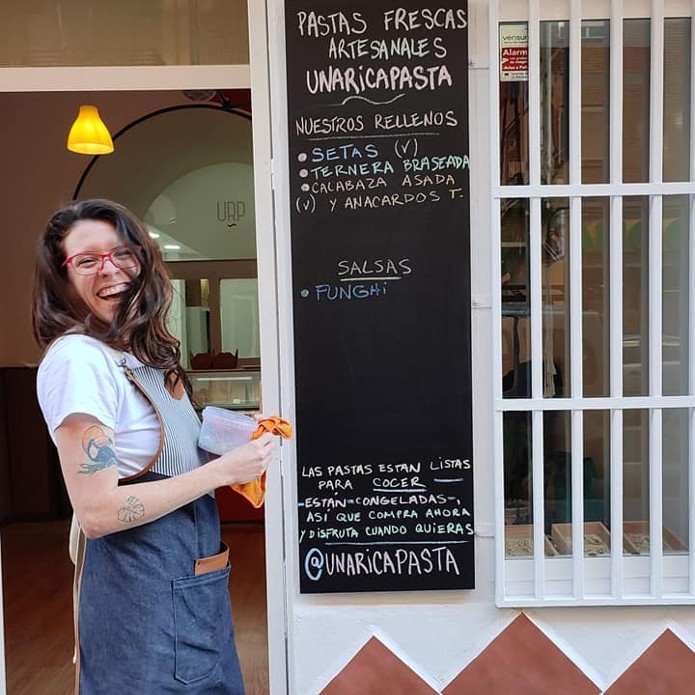 PASTAS FRESCAS
ARTESANALES
UNARICAPASTA
NUESTROS RELLENOS
• SETAS (V)
• TERNERA BRASEADA
• CALABAZA ASADA
(V) Y ANACARDOS T.
SALSAS
• FUNGHi
LAS PASTAS ESTAN LISTAS
PARA COCER
-ESTÁN CONGELADAS-,
ASÍ QUE COMPRA AHORA
Y DISFRUTA CUANDO QUIERAS
@UNARICAPASTA
URP
Alarm